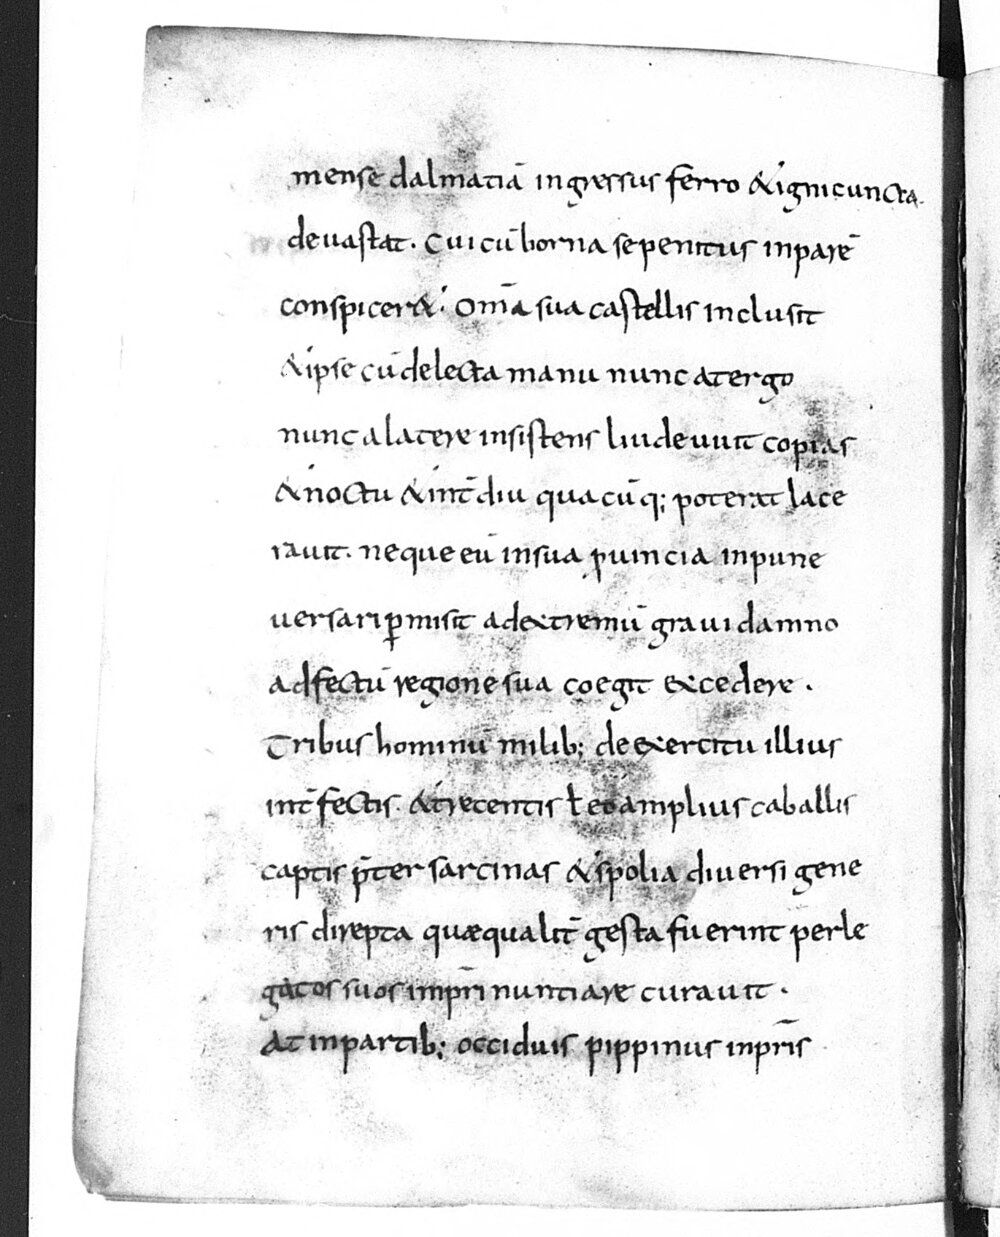 mense dalmatiā ingressus ferro & igni cuncta
deuastat. Cui cū borna se penitus inparē
conspiceret. Om̄a sua castellis inclusit
& ipse cū delecta manu nunc a tergo
nunc a latere insistens liudeuuit copias
& noctu & int̄diu quacūq; poterat lace
rauit. neque eū in sua ꝓuincia inpune
uersari ꝑmisit ad extremū graui damno
adfectū regione sua coegit excedere.
Tribus hominū milib; de exercitu illius
int̄fectis. & trecentis ł eo amplius caballis
captis p̄ter sarcinas & spolia diuersi gene
ris direpta quæ qualit̄ gesta fuerint per le
gatos suos imp̄ri nuntiare curauit.
At in partib; occiduis pippinus inpr̄is